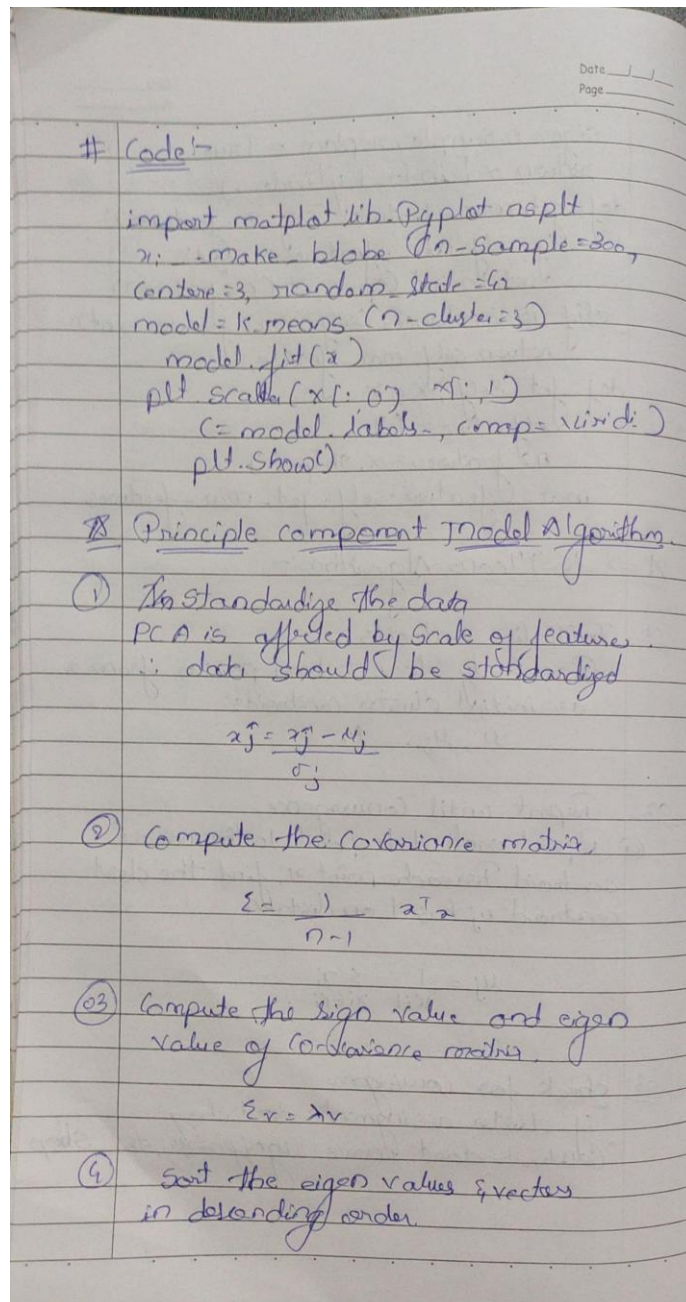 Date
Page
# Code:-
import matplot lib. Pyplot as plt
x, _ = make - blobe (n-sample = 300,
Centere = 3, random_ state = 42
model = k. means (n-cluster = 3)
model. fist (x)
plt. scatter (x[: 0] x[:, 1)
C = model. labels_, cmap = viridi )
plt. show()
Principle component model Algorithm.
① Standardize the data
PCA is affected by Scale of feature.
∴ data should be standardized
xj = xj - μj
σj
② Compute the Covariance matrix
Σ = 1 xᵀx
n-1
03 Compute the sign value and eigen
value of Co-variance matrix.
Σv = λv
④ Sort the eigen values & vectors
in descending order.